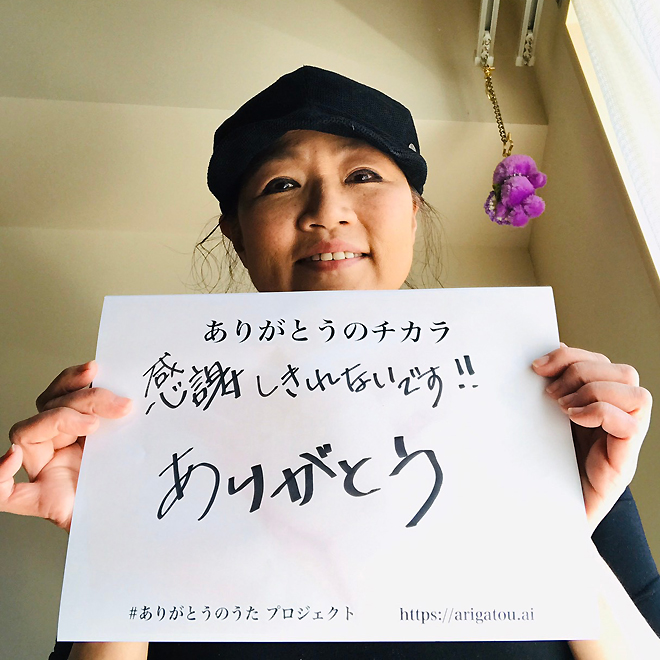 ありがとうのチカラ
感謝しきれないです!!
ありがとう
#ありがとうのうた プロジェクト https://arigatou.ai